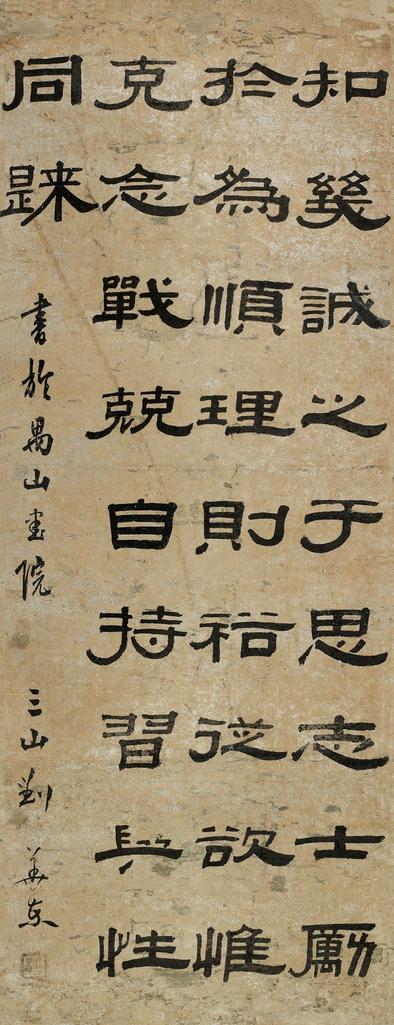 知幾誠之于思志士勵
於為順理則裕從欲惟
克念戰兢自持習與性
同歸
書於禺山書院 三山劉華東